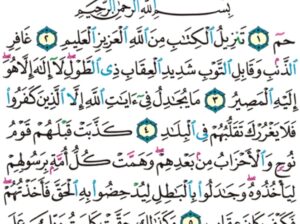 بِسْمِ ٱللَّهِ ٱلرَّحْمَٰنِ ٱلرَّحِيمِ
حمٓ ١ تَنزِيلُ ٱلْكِتَٰبِ مِنَ ٱللَّهِ ٱلْعَزِيزِ ٱلْعَلِيمِ ٢ غَافِرِ
ٱلذَّنۢبِ وَقَابِلِ ٱلتَّوْبِ شَدِيدِ ٱلْعِقَابِ ذِى ٱلطَّوْلِ لَآ إِلَٰهَ إِلَّا هُوَ
إِلَيْهِ ٱلْمَصِيرُ ٣ مَا يُجَٰدِلُ فِىٓ ءَايَٰتِ ٱللَّهِ إِلَّا ٱلَّذِينَ كَفَرُوا۟
فَلَا يَغْرُرْكَ تَقَلُّبُهُمْ فِى ٱلْبِلَٰدِ ٤ كَذَّبَتْ قَبْلَهُمْ قَوْمُ
نُوحٍ وَٱلْأَحْزَابُ مِنۢ بَعْدِهِمْ وَهَمَّتْ كُلُّ أُمَّةٍۭ بِرَسُولِهِمْ
لِيَأْخُذُوهُ وَجَٰدَلُوا۟ بِٱلْبَٰطِلِ لِيُدْحِضُوا۟ بِهِ ٱلْحَقَّ فَأَخَذْتُهُمْ